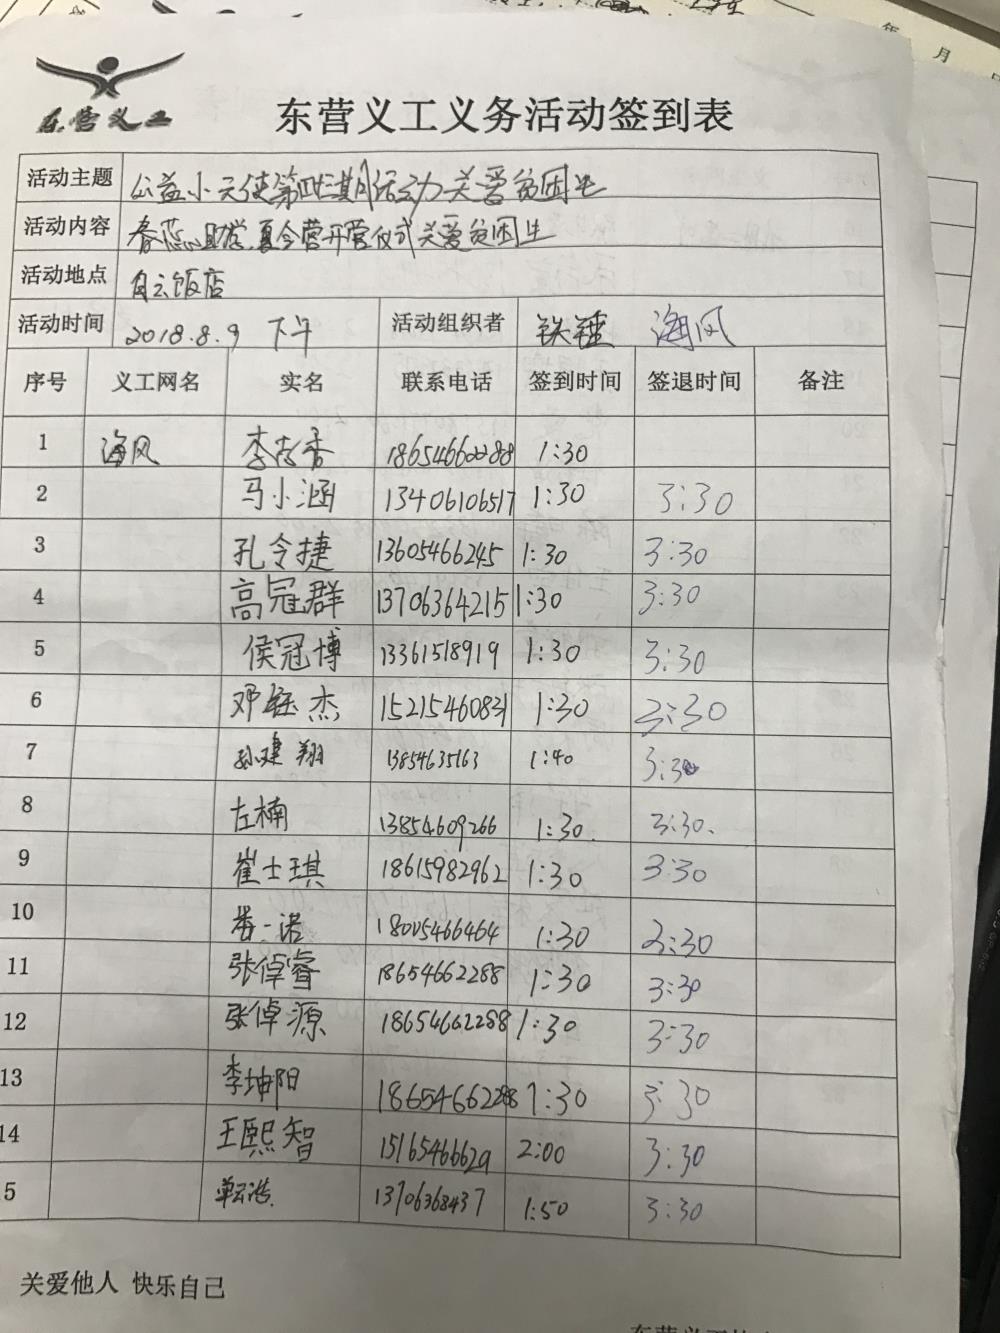 年 月
东营义工
东营义工义务活动签到表
活动主题 公益小天使第四期活动关爱贫困生
活动内容 春蕊助学夏令营开营仪式关爱贫困生
活动地点 白云饭店
活动时间 2018.8.9 下午 活动组织者 铁锤 海风
序号 义工网名 实名 联系电话 签到时间 签退时间 备注
1 海风 李志香 18654662288 1:30
2 马小涵 13406106517 1:30 3:30
3 孔令捷 13605466245 1:30 3:30
4 高冠群 13706364215 1:30 3:30
5 侯冠博 13361518919 1:30 3:30
6 邓钰杰 15215460831 1:30 3:30
7 孙建翔 13854635163 1:40 3:30
8 左楠 13854609266 1:30 3:30.
9 崔士琪 18615982962 1:30 3:30
10 一诺 18005466464 1:30 3:30
11 张倬睿 18654662288 1:30 3:30
12 张倬源 18654662288 1:30 3:30
13 李坤阳 18654662288 1:30 3:30
14 王熙智 15165466629 2:00 3:30
5 单云浩 13706368437 1:50 3:30
关爱他人 快乐自己